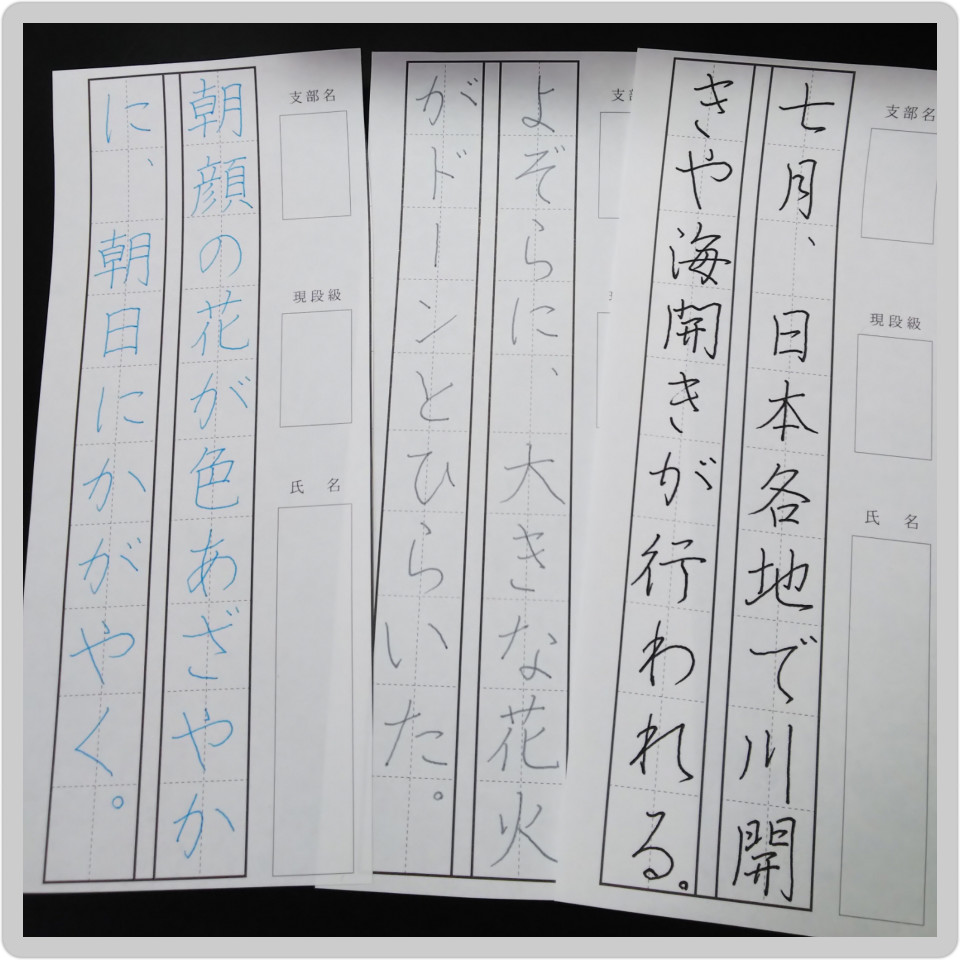 支部名
現段級
氏名
七月、日本各地で川開
きや海開きが行われる。
支
よぞらに、大きな花火
がドーンとひらいた。
支部名
現段級
氏名
朝顔の花が色あざやか
に、朝日にかがやく。